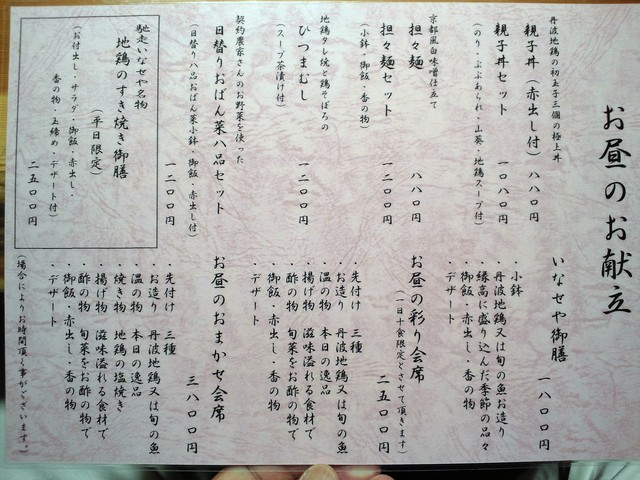 お昼のお献立
丹波地鶏の初玉子三個の極上丼
親子丼（赤出し付）八八〇円
親子丼セット 一〇八〇円
（のり・ぶぶあられ・山葵・地鶏スープ付）
京都風白味噌仕立て
担々麺 八八〇円
担々麺セット 一二〇〇円
（小鉢・御飯・香の物）
地鶏タレ焼と鶏そぼろの
ひつまむし 一二〇〇円
（スープ茶漬け付）
契約農家さんのお野菜を使った
日替りおばん菜八品セット 一二〇〇円
（日替り八品おばん菜小鉢・御飯・赤出し付）
馳走いなせや名物
地鶏のすき焼き御膳
（平日限定） 二五〇〇円
（お付出し・サラダ・御飯・赤出し・
香の物・玉締め・デザート付）
いなせや御膳 一八〇〇円
・小鉢
・丹波地鶏又は旬の魚お造り
・縁高に盛り込んだ季節の品々
・御飯・赤出し・香の物
・デザート
お昼の彩り会席 二五〇〇円
（一日十食限定とさせて頂きます）
・先付け 三種
・お造り 丹波地鶏又は旬の魚
・温の物 本日の逸品
・揚げ物 滋味溢れる食材で
・酢の物 旬菜をお酢の物で
・御飯・赤出し・香の物
・デザート
お昼のおまかせ会席 三八〇〇円
・先付け 三種
・お造り 丹波地鶏又は旬の魚
・温の物 本日の逸品
・焼き物 地鶏の塩焼き
・揚げ物 滋味溢れる食材で
・酢の物 旬菜をお酢の物で
・御飯・赤出し・香の物
・デザート
（場合によりお時間頂く事がございます。）